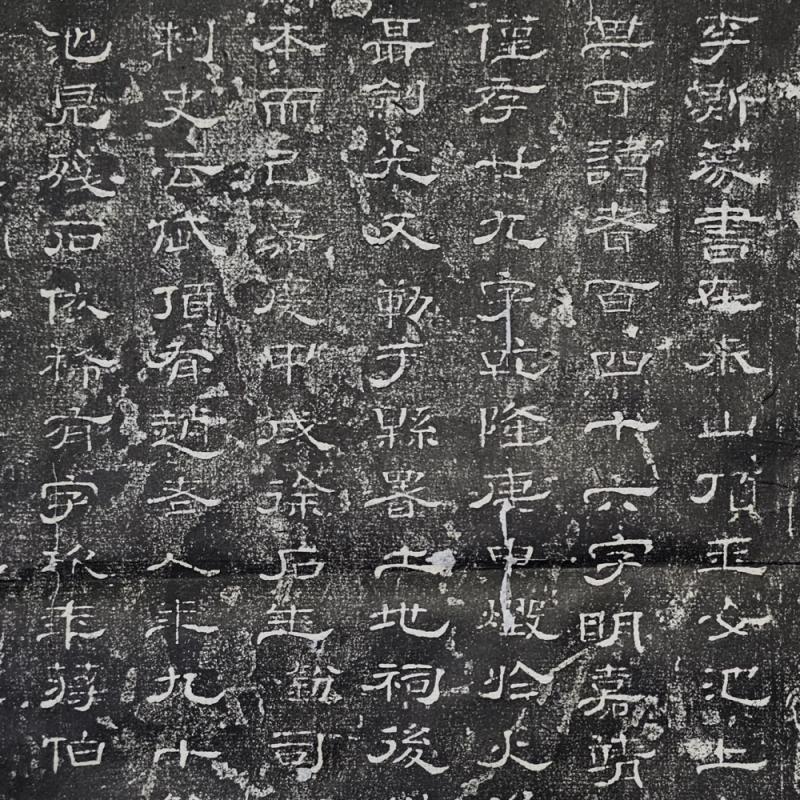 李斯篆書在泰山頂玉女池上
其可讀者百四十六字明嘉靖
僅存廿九字乾隆庚申燬於火
聶劍光又勒于縣署土地祠後
本而已嘉慶甲戌徐石生司
刺史云岱頂有趙老人年九十
池見殘石依稀有字年蔣伯